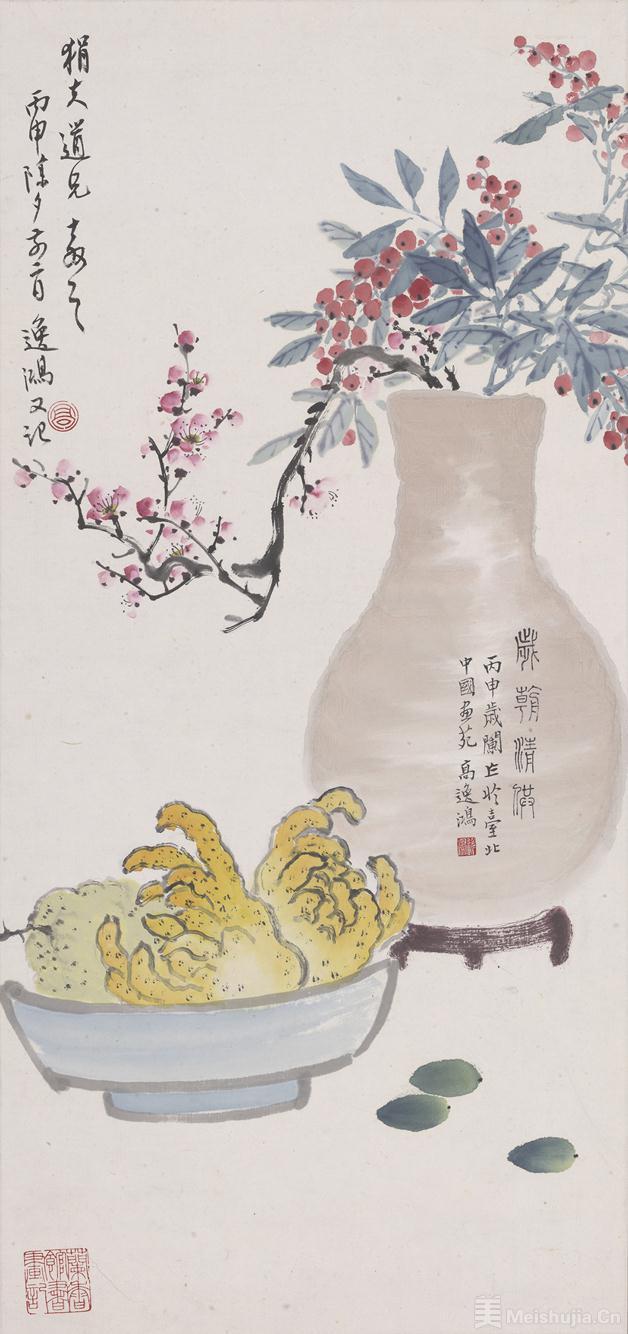 狷夫道兄教之
丙申除夕前日逸鴻又記
歲朝清供
丙申歲闌作於臺北
中國畫苑高逸鴻
美 Meishujia.Cn